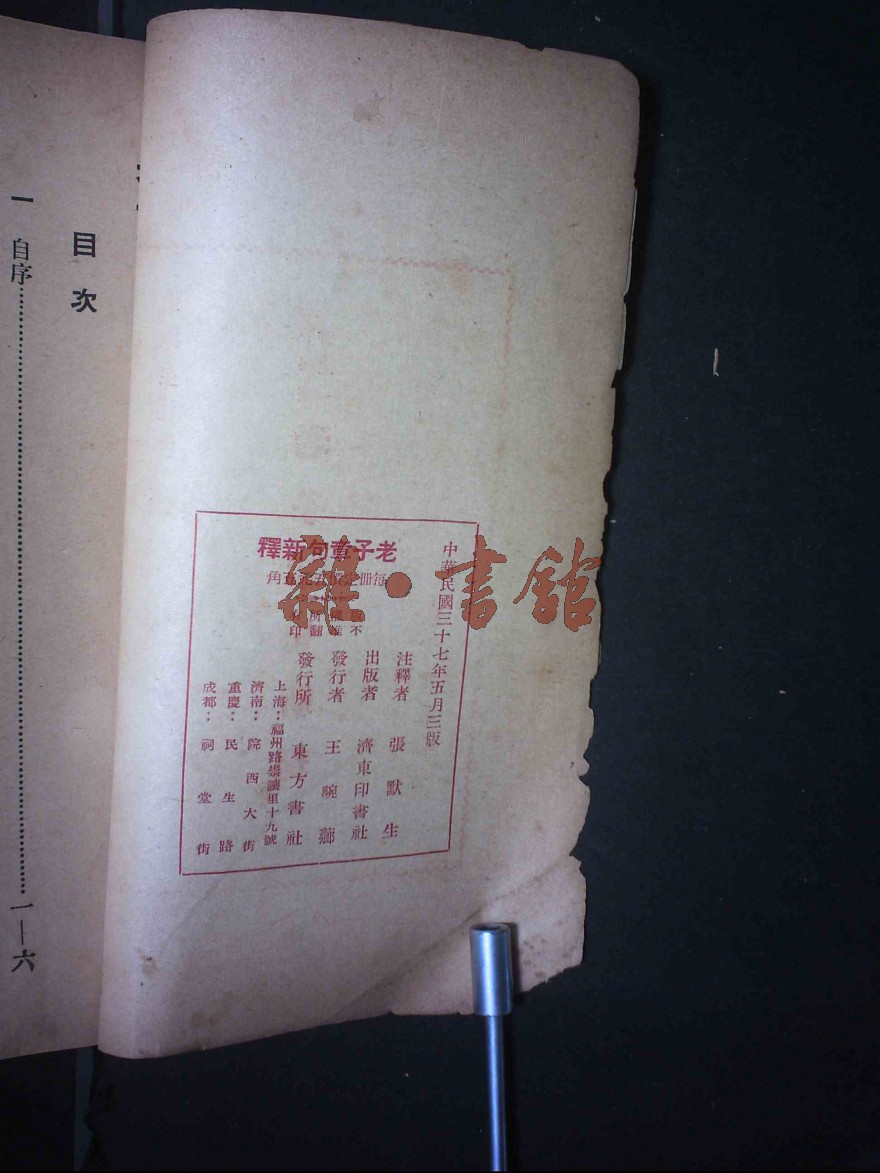 中華民國三十七年五月三版
老子章句新釋
每冊定價五元五角
注釋者 張默生
出版者 濟東印書社
發行者 王畹薌
發行所 東方書社
上海：福州路崇讓里十九號
濟南：院西大街
重慶：民生路
成都：祠堂街
雜·書館
目次
一 自序……一—六